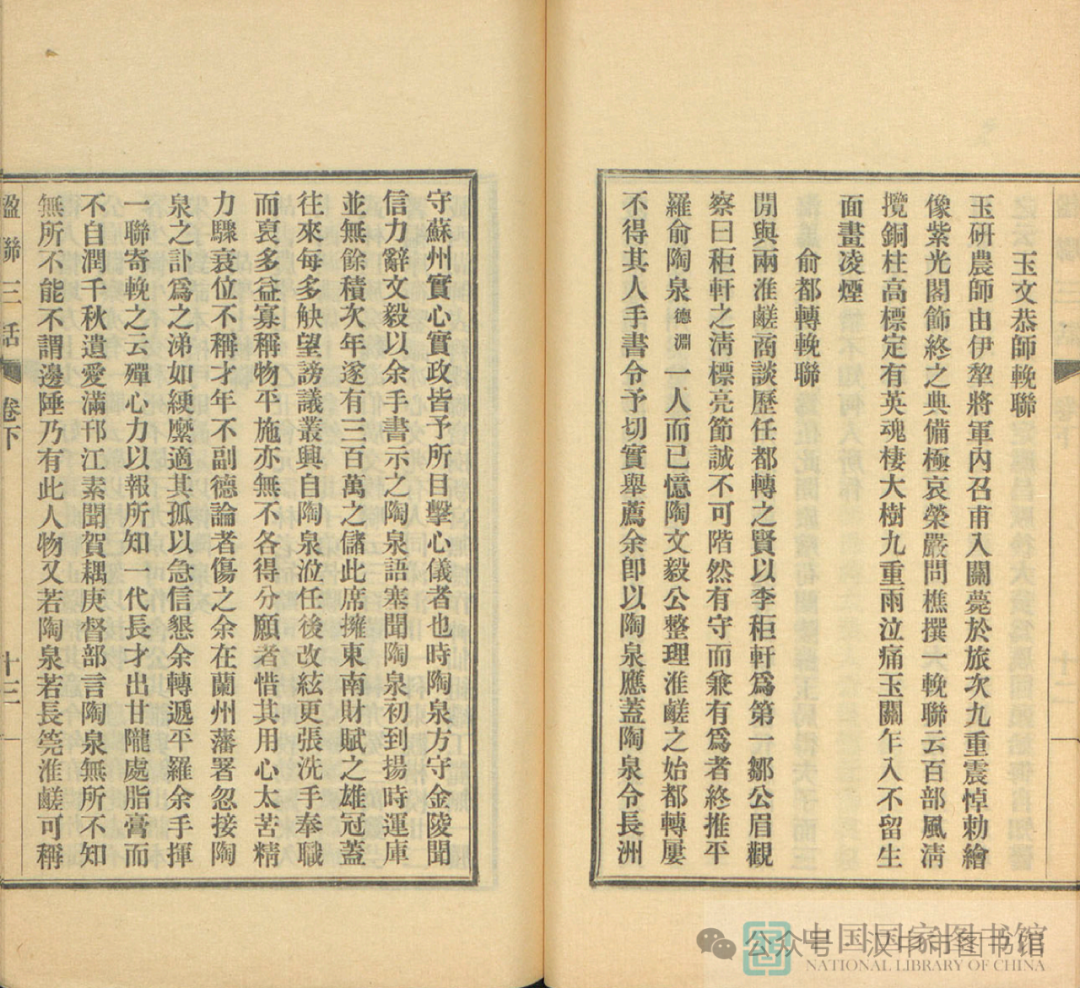 玉文恭師輓聯
玉研農師由伊犂將軍內召甫入關薨於旅次九重震悼勅繪
像紫光閣飾終之典備極哀榮嚴問樵撰一輓聯云百部風淸
攬銅柱高標定有英魂棲大樹九重雨泣痛玉關乍入不留生
面畫凌煙
俞都轉輓聯
閒與兩淮鹺商談歷任都轉之賢以李秬軒爲第一鄒公眉觀
察曰秬軒之淸標亮節誠不可階然有守而兼有爲者終推平
羅俞陶泉德淵一人而已憶陶文毅公整理淮鹺之始都轉屢
不得其人手書令予切實舉薦余卽以陶泉應蓋陶泉令長洲
守蘇州實心實政皆予所目擊心儀者也時陶泉方守金陵聞
信力辭文毅以余手書示之陶泉語塞聞陶泉初到揚時運庫
並無餘積次年遂有三百萬之儲此席擁東南財賦之雄冠蓋
往來每多觖望謗議叢興自陶泉涖任後改絃更張洗手奉職
而裒多益寡稱物平施亦無不各得分願者惜其用心太苦精
力驟衰位不稱才年不副德論者傷之余在蘭州藩署忽接陶
泉之訃爲之涕如綆縻適其孤以急信懇余轉遞平羅余手揮
一聯寄輓之云殫心力以報所知一代長才出甘隴處脂膏而
不自潤千秋遺愛滿邗江素聞賀耦庚督部言陶泉無所不知
無所不能不謂邊陲乃有此人物又若陶泉若長筦淮鹺可稱
楹聯三話 卷下 十三
公众号 · 汉中市图书馆
中国国家图书馆
NATIONAL LIBRARY OF CHINA